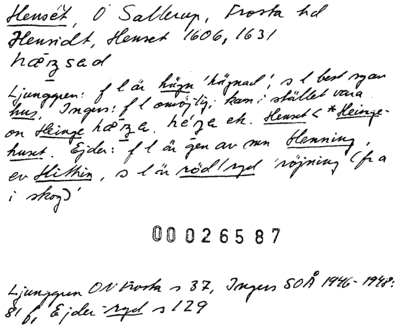 Hensét, Ö Sallerup, Frosta hd
Hensidt, Henset 1606, 1631
hæʒsad
Ljunggren: f l är hägn 'hägnad'; s l best av
hus. Ingers: f l omöjlig; kan i stället vara
on Heinge hæʒa. héʒa ek. Henset < *Heinge-
huset. Ejder: f l är gen av mn Henning,
ev Hithin, s l är röd/ryd 'röjning (fra
i skog)'
00026587
Ljunggren ON Frosta s 37, Ingers SOÅ 1946-1948:
81 f, Ejder -ryd s 129